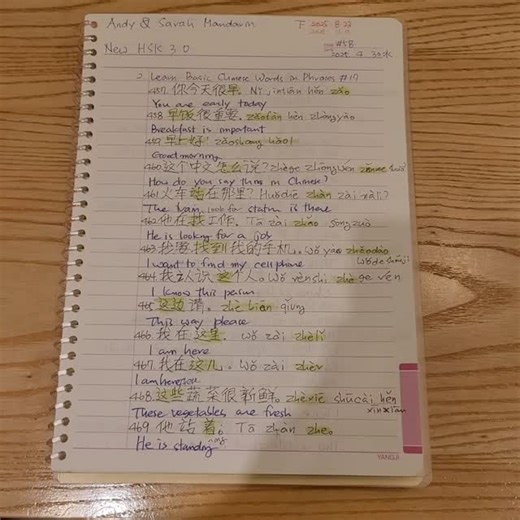 Andy & Sarah Mandarin
下 2025.8.22
New HSK 3 0
#58
Learn Basic Chinese Words in Phrases #17
457. 你今天很早. Nǐ jīntiān hěn zǎo
You are early today
458. 早饭很重要. zǎofàn hěn zhòngyào
Breakfast is important
459. 早上好! zǎoshang hǎo!
Good morning
460. 这个中文怎么说? zhège zhōngwén zěnme
How do you say this in Chinese?
461. 火车站在那里? Huǒchē zhàn zài
The station is there
462. 他在找工作. Tā zài zhǎo gōngzuò
He is looking for a job
463. 我要找到我的手机. wǒ yào zhǎodào
wǒde shǒujī
I want to find my cellphone
464. 我认识这个人. Wǒ rènshi zhè ge rén
I know this person
465. 这边请. zhè biān qǐng
This way please
466. 我在这里. wǒ zài zhèlǐ
I am here
467. 我在这儿. wǒ zài zhèr
I am here
468. 这些蔬菜很新鲜. zhèxiē shūcài hěn
xīnxiān
These vegetables are fresh
469. 他站着. Tā zhàn zhe.
He is standing